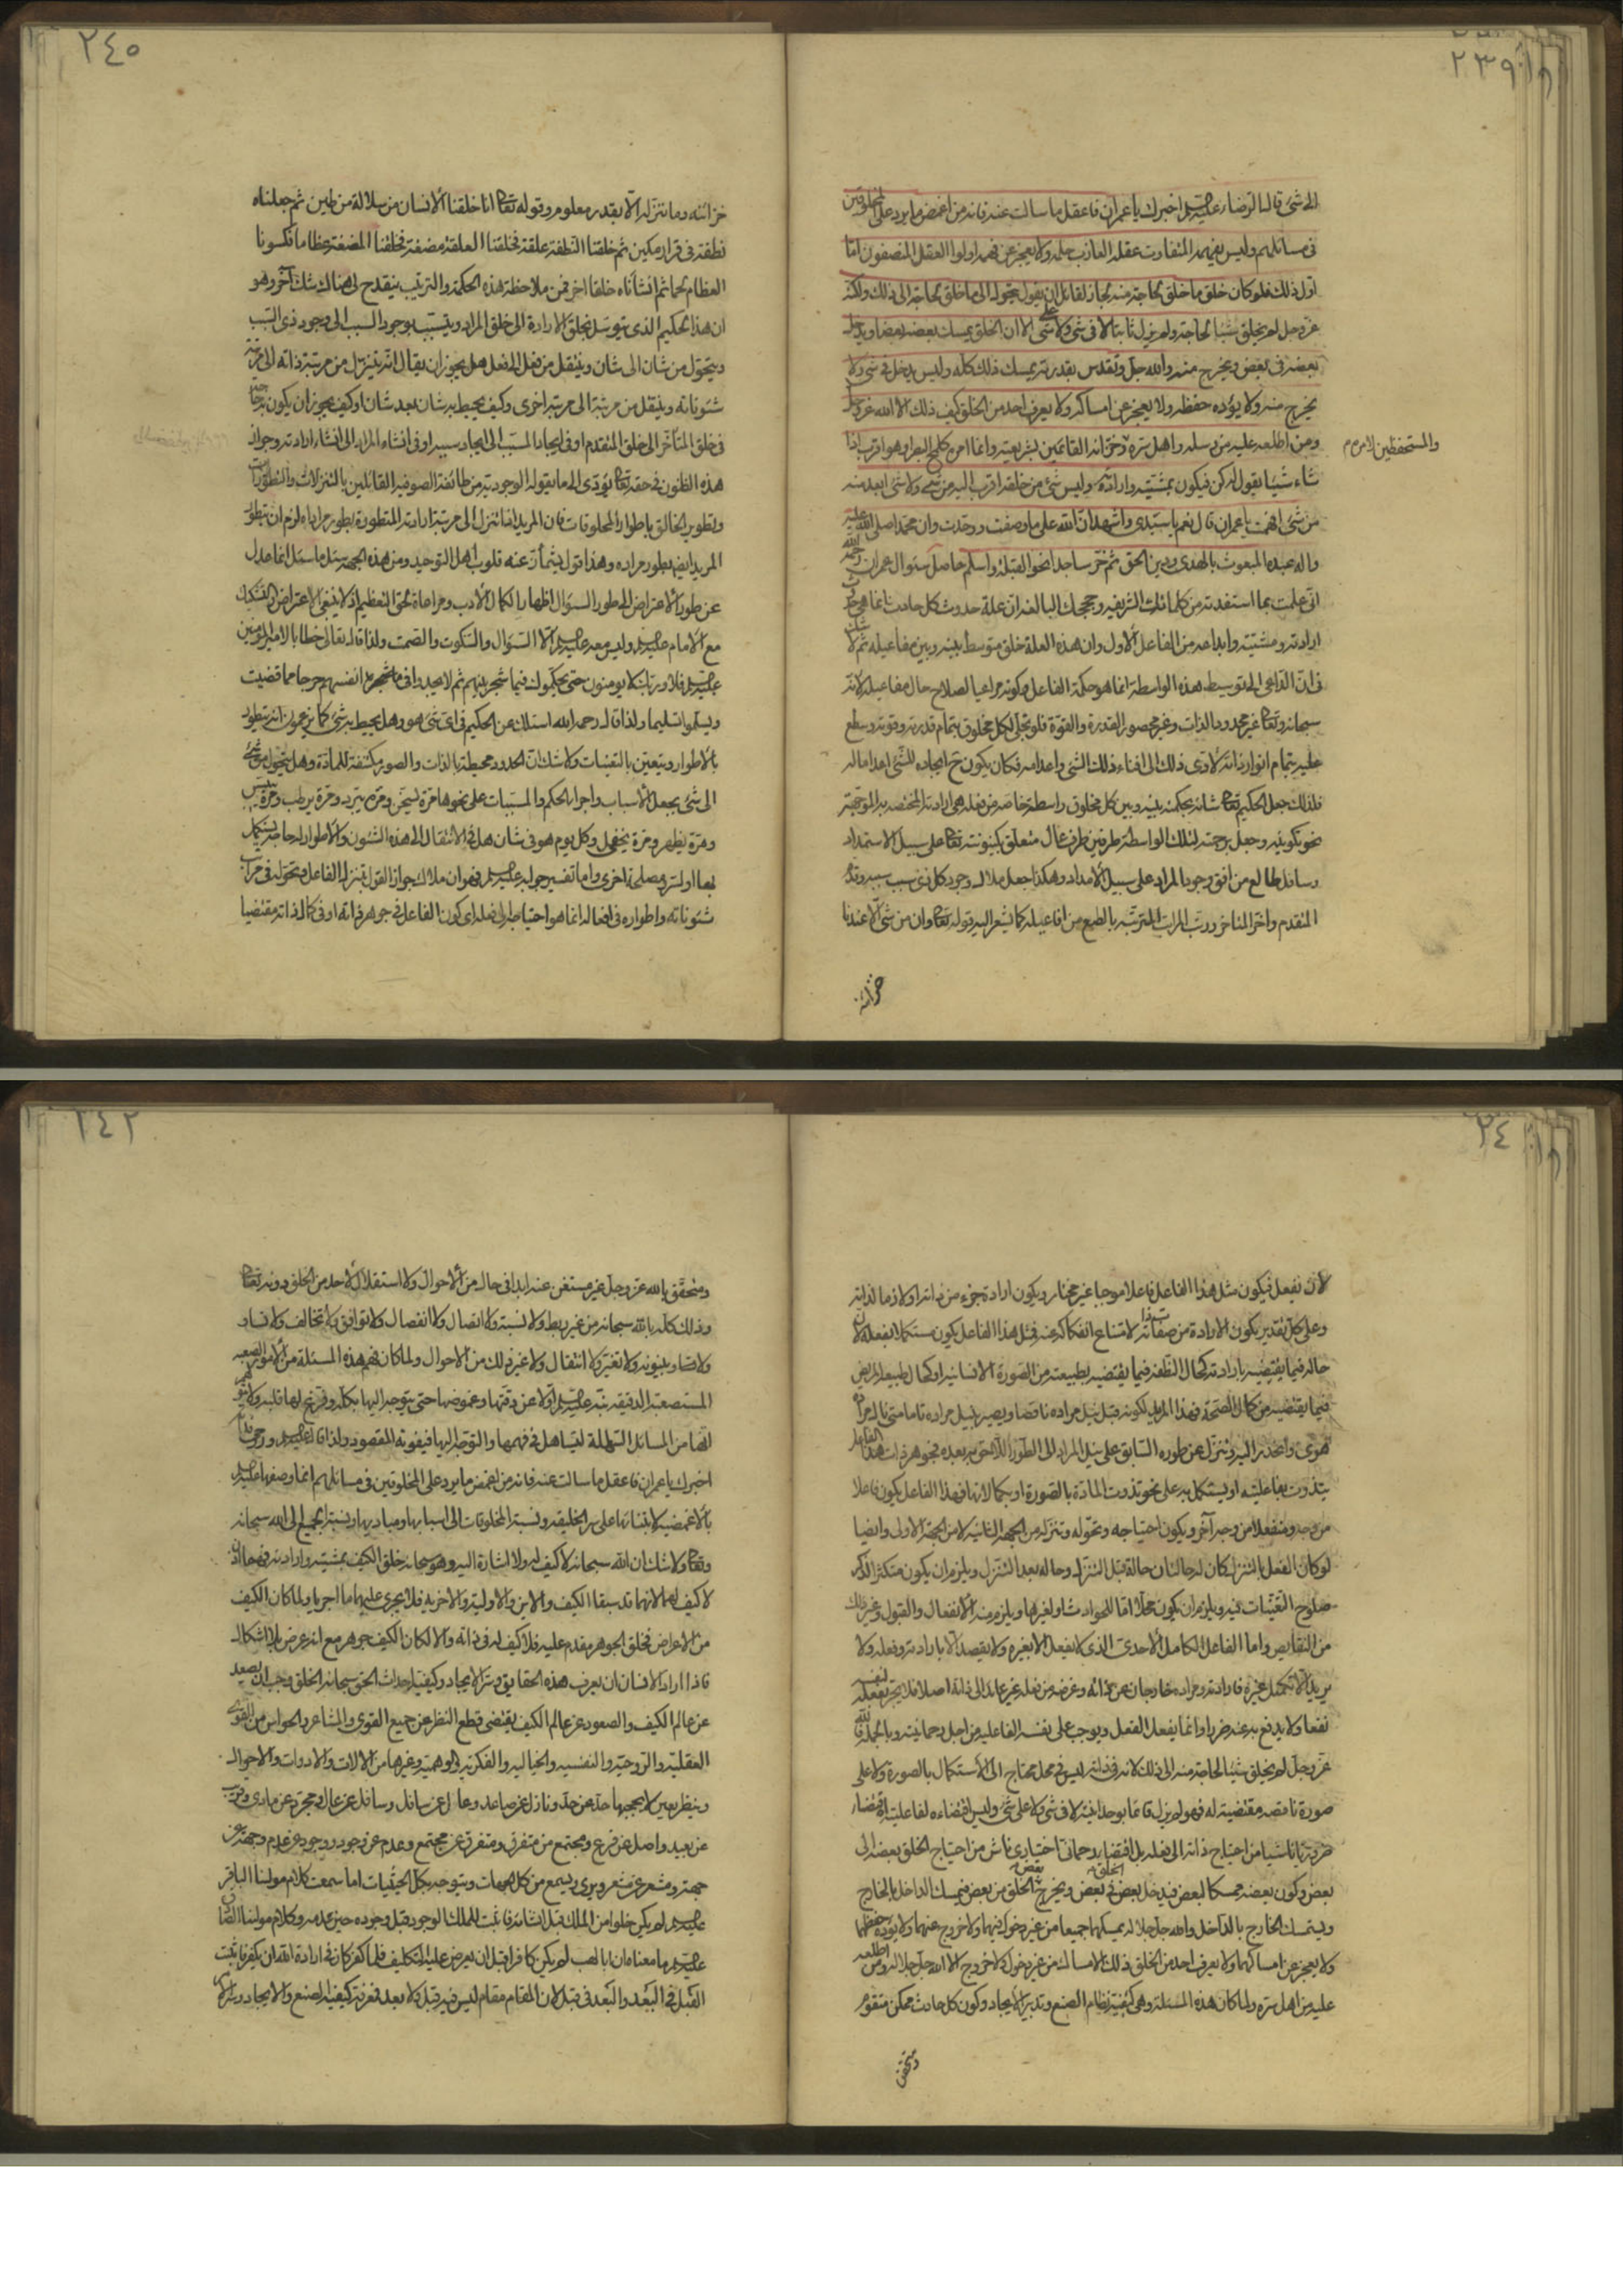 ٢٣٩
الى شئ قال الرضا عليه السلم اخبرك يا عمران فاعقل ما سالت عنه فانه من اغمض ما يرد على المخلوقين
فى مسائلهم وليس يفهمه المتفاوت عقله العازب حلمه ولا يعجز عن فهمه اولوا العقل المنصفون اما
اول ذلك فلو كان خلق ما خلق لحاجة منه لجاز لقائل ان يقول يتحول الى ما خلق لحاجته الى ذلك ولكنه
عز وجل لم يخلق شيئا لحاجة ولم يزل ثابتا لا فى شئ ولا على شئ الا ان الخلق يمسك بعضه بعضا ويدخل
بعضه فى بعض ويخرج منه والله جل وتقدس بقدرته يمسك ذلك كله وليس يدخل فى شئ ولا
يخرج منه ولا يؤده حفظه ولا يعجز عن امساكه ولا يعرف احد من الخلق كيف ذلك الا الله عز وجل
ومن اطلعه عليه من رسله واهل سره وخزانه القائمين بشريعته وانما امره كلمح البصر او هو اقرب اذا
والمستحفظين لامره
شاء شيئا يقول له كن فيكون بمشيته وارادته وليس شئ من خلقه اقرب اليه من شئ ولا شئ ابعد منه
من شئ افهمت يا عمران قال نعم يا سيدى واشهد ان الله على ما وصفت ووحدت وان محمدا صلى الله عليه
واله عبده المبعوث بالهدى ودين الحق ثم خر ساجدا نحو القبلة واسلم حاصل سؤال عمران رحمه الله
انى علمت بما استفدته من كلماتك الشريفه وحججك البالغه ان علة حدوث كل حادث انما هى
ارادته ومشيته وابداعه من الفاعل الاول وان هذه العلة خلق متوسط بينه وبين مفاعيله ثم لا شك
فى ان الداعى الى توسيط هذه الواسطة انما هو حكمة الفاعل وكونه مراعيا لصلاح حال مفاعيله لانه
سبحانه وتعالى غير محدود بالذات وغير محصور القدرة والقوة فلو تجلى لكل مخلوق بتمام قدرته وقوته وسطع
عليه بتمام انوار ذاته لادى ذلك الى افناء ذلك الشئ واعدامه فكان يكون ح ايجاده للشئ اعداما له
فلذلك جعل الحكيم تعالى شانه بحكمته بينه وبين كل مخلوق واسطة خاصه من فعله هى ارادته المختصه به الموجهة
نحو تكوينه وجعل برحمته لتلك الواسطة طرفين طرف عال متعلق بكينونته تعالى على سبيل الاستمداد
وسافل طالع من افق وجود المراد على سبيل الامداد وهكذا جعل ملاك وجود كل ذى سبب سببه وقدم
المتقدم واخر المتاخر ورتب المراتب المترتبه بالطبع من افاعيله كما يشعر اليه قوله تعالى وان من شئ الا عندنا
خزائنه
٢٤٠
خزائنه وما ننزله الا بقدر معلوم وقوله تعالى انا خلقنا الانسان من سلالة من طين ثم جعلناه
نطفة فى قرار مكين ثم خلقنا النطفة علقة فخلقنا العلقة مضغة فخلقنا المضغة عظاما فكسونا
العظام لحما ثم انشأناه خلقا اخر فمن ملاحظة هذه الحكمة والترتيب ينقدح لى هناك شك آخر وهو
ان هذا الحكيم الذى يتوسل بخلق الارادة الى خلق المراد ويتسبب بوجود السبب الى وجود ذى السبب
ويتحول من شان الى شان وينتقل من فعل الى فعل هل يجوز ان يقال انه يتنزل من مرتبة ذاته الى مرتبة
شئوناته وينتقل من مرتبة الى مرتبة اخرى وكيف يحيط به شان بعد شان او كيف يجوز ان يكون
فى خلق المتأخر الى خلق المتقدم او فى ايجاد المسبب الى ايجاد سببه او فى انشاء المراد الى انشاء ارادته وجواز
هذه الظنون فى حقه تعالى يؤدى الى ما يقوله الوجوديه من طائفة الصوفيه القائلين بالتنزلات والتطورات
وتطوير الخالق باطوار المخلوقات فان المريد اذا تنزل الى مرتبة ارادته المتطورة بطور مراده لزم ان يتطور
المريد ايضا بطور مراده وهذا قول يشمأز عنه قلوب اهل التوحيد ومن هذه الجهة سئل ما سئل انما عدل
عن طور الاعتراض الى طور السؤال اظهارا لكمال الادب ومراعاة لحق التعظيم اذ لا ينبغى الاعتراض والتشكيك
مع الامام عليه السلم وليس معه عليه السلم الا السؤال والسكوت والصمت ولذا قال تعالى خطابا لامير المؤمنين
عليه السلم فلا وربك لا يومنون حتى يحكموك فيما شجر بينهم ثم لا يجدوا فى انفسهم حرجا مما قضيت
ويسلموا تسليما ولذا قال رحمه الله اسئلك عن الحكيم فى اى شئ هو وهل يحيط به شئ كما يزعمون انه يتطور
بالاطوار ويتعين بالتعينات ولا شك ان الحدود محيطة بالذات والصور مكتنفة للمادة وهل يتحول من شئ
الى شئ بجعل الاسباب واجراء الحكم والمسببات على نحوها مرة يسخن ومرة يبرد ومرة يرطب ومرة ييبس
ومرة يظهر ومرة يخفى وكل يوم هو فى شان هل فى الانتقال الى هذه الشئون والاطوار له حاجة يستكمل
بها او لستر مصلحة اخرى واما تفسير جوابه عليه السلم فهو ان ملاك جواز القول بتنزل الفاعل وتحوله فى مراتب
شئوناته واطواره فى افعاله انما هو احتياجه الى فعله اى كون الفاعل فى جوهر ذاته او فى كمال ذاته مقتضيا
٢٤
لان يفعل فيكون مثل هذا الفاعل فاعلا موجبا غير مختار ويكون ارادته جزء من ذاته او لازما لذاته
وعلى كل تقدير يكون الارادة من صفاته لامتناع انفكاكه عنه فمثل هذا الفاعل يكون مستكملا بفعله لان
حاله فيما يقتضيه بارادته كحال النطفه فيما يقتضيه بطبيعته من الصورة الانسانيه او كحال طبيعة المريض
فيما يقتضيه من كمال الصحة فهذا المريد لكونه قبل نيل مراده ناقصا ويصير بنيل مراده تاما متى نال مراده
هوى وانحدر اليه وتنزل عن طوره السابق على نيل المراد الى الطور اللاحق به بعده فجوهر ذات هذا الفاعل
يتذوت بفاعليته او يستكمل به على نحو تذوت المادة بالصورة او بكمالاتها فهذا الفاعل يكون فاعلا
من وجه ومنفعلا من وجه آخر ويكون احتياجه وتحوله وتنزله من الجهة الثانيه لا من الجهة الاولى وايضا
لو كان الفعل بالتنزل لكان له حالتان حالة قبل التنزل وحاله بعد التنزل ويلزم ان يكون متكثرا لذكر
صلوح التعينات فيه ويلزم ان يكون محلا اما للحوادث او لغيرها ويلزم منه الانفعال والقبول وغير ذلك
من النقايص واما الفاعل الكامل الاحدى الذى لا يفعل الا بغيره ولا يقصد الا بارادته وفعله ولا
يريد الا تكميل غيره فارادته ومراده خارجان عن ذاته وغرضه من فعله غير عائد الى ذاته اصلا فلا يجر بفعله لنفسه
نفعا ولا يدفع به عنه ضررا وانما يفعل الفعل ويوجب على نفسه الفاعليه من اجل رحمانيته وبالجملة فالله
عز وجل لم يخلق شيئا لحاجة منه الى ذلك لانه فى ذاته ليس فى محل محتاج الى الاستكمال بالصورة ولا على
صورة ناقصه مقتضية له فهو لم يزل قائما بوحدانيته لا فى شئ ولا على شئ وليس اقتضاءه لفاعليته اقتضاء
ضروريا ناشيا من احتياج ذاته الى فعله بل اقتضاء رحمانى اختيارى ناش من احتياج الخلق بعضه الى
بعض وكون بعضه ممسكا لبعض فيدخل بعض الخلق فى بعض ويخرج بعض الخلق من بعض فيمسك الداخل بالخارج
ويتمسك الخارج بالداخل والله جل جلاله يمسكهما جميعا من غير دخول فيهما ولا خروج عنهما ولا يؤده حفظهما
ولا يعجز عن امساكهما ولا يعرف احد من الخلق ذلك الامساك من غير دخول ولا خروج الا الله جل جلاله ومن اطلعه
عليه من اهل سره ولما كان هذه المسئلة وهى كيفية نظام الصنع وتدبير الايجاد وكون كل حادث ممكن متقوم
ومتحقق
٢٤٢
ومتحقق بالله عز وجل غير مستغن عنه ابدا فى حال من الاحوال ولا استقلال لاحد من الخلق دونه تعالى
وذلك كله بالله سبحانه من غير ربط ولا نسبة ولا اتصال ولا انفصال ولا توافق ولا تخالف ولا تساو
ولا تضاد وبينونه ولا تغير ولا انتقال ولا غير ذلك من الاحوال ولما كان فهم هذه المسئلة من الامور الصعبه
المستصعبة الدقيقه نبه عليه السلم اولا عن دقتها وغموضها حتى يتوجه اليها بكله ويفرغ لها قلبه ولا يتوهم
انها من المسائل السهلة ليتساهل فى فهمها والتوجه اليها فيفوته المقصود ولذا قال عليه السلم
اخبرك يا عمران فاعقل ما سالت عنه فانه من اغمض ما يرد على المخلوقين فى مسائلهم انما وصفها عليه السلم
بالاغمضيه لابتنائها على سر الخليقه ونسبة المخلوقات الى اسبابها ومباديها ونسبة الجميع الى الله سبحانه
وتعالى ولا شك ان الله سبحانه لا كيف له ولا اشارة اليه وهو سبحانه خلق الكيف بمشيته وارادته فهما اذن
لا كيف لهما لانهما قد سبقا الكيف والاين والاوليه والاخريه فلا يجرى عليهما ما اجريا ولما كان الكيف
من الاعراض فخلق الجوهر مقدم عليه فلا كيف له فى ذاته والا لكان الكيف جوهر مع انه عرض بلا اشكال
فاذا اراد الانسان ان يعرف هذه الحقايق وسر الايجاد وكيفية احداث الحق سبحانه الخلق وجب ان يصعد
عن عالم الكيف والصعود عن عالم الكيف يقتضى قطع النظر عن جميع القوى والمشاعر والحواس من القوى
العقليه والروحيه والنفسيه والخياليه والفكريه والوهميه وغيرها من الالات والادوات والاحوال
وينظر بعين لا يحجبها حد عن حد ونازل عن صاعد وعال عن سافل وسافل عن عال ومجرد عن مادى وقريب
عن بعيد واصل عن فرع ومجتمع من متفرق ومتفرق عن مجتمع وعدم عن وجود ووجود عن عدم وجهة عن
جهة ومشعر عن مشعر ويرى ويسمع من كل الجهات ويتوجه بكل الحيثيات اما سمعت كلام مولينا الباقر
عليه السلم لم يكن خلوا من الملك قبل انشائه فاثبت للملك الوجود قبل وجوده حين عدمه وكلام مولينا الصادق
عليه السلم ما معناه ان ابا لهب لم يكن كافرا قبل ان يعرض عليه التكليف فلما كفر كان فى ارادة الله ان يكفر فاثبت
القبل فى البعد والبعد فى قبل لان المقام مقام ليس فيه قبل ولا بعد فمعرفة كيفية الصنع والايجاد